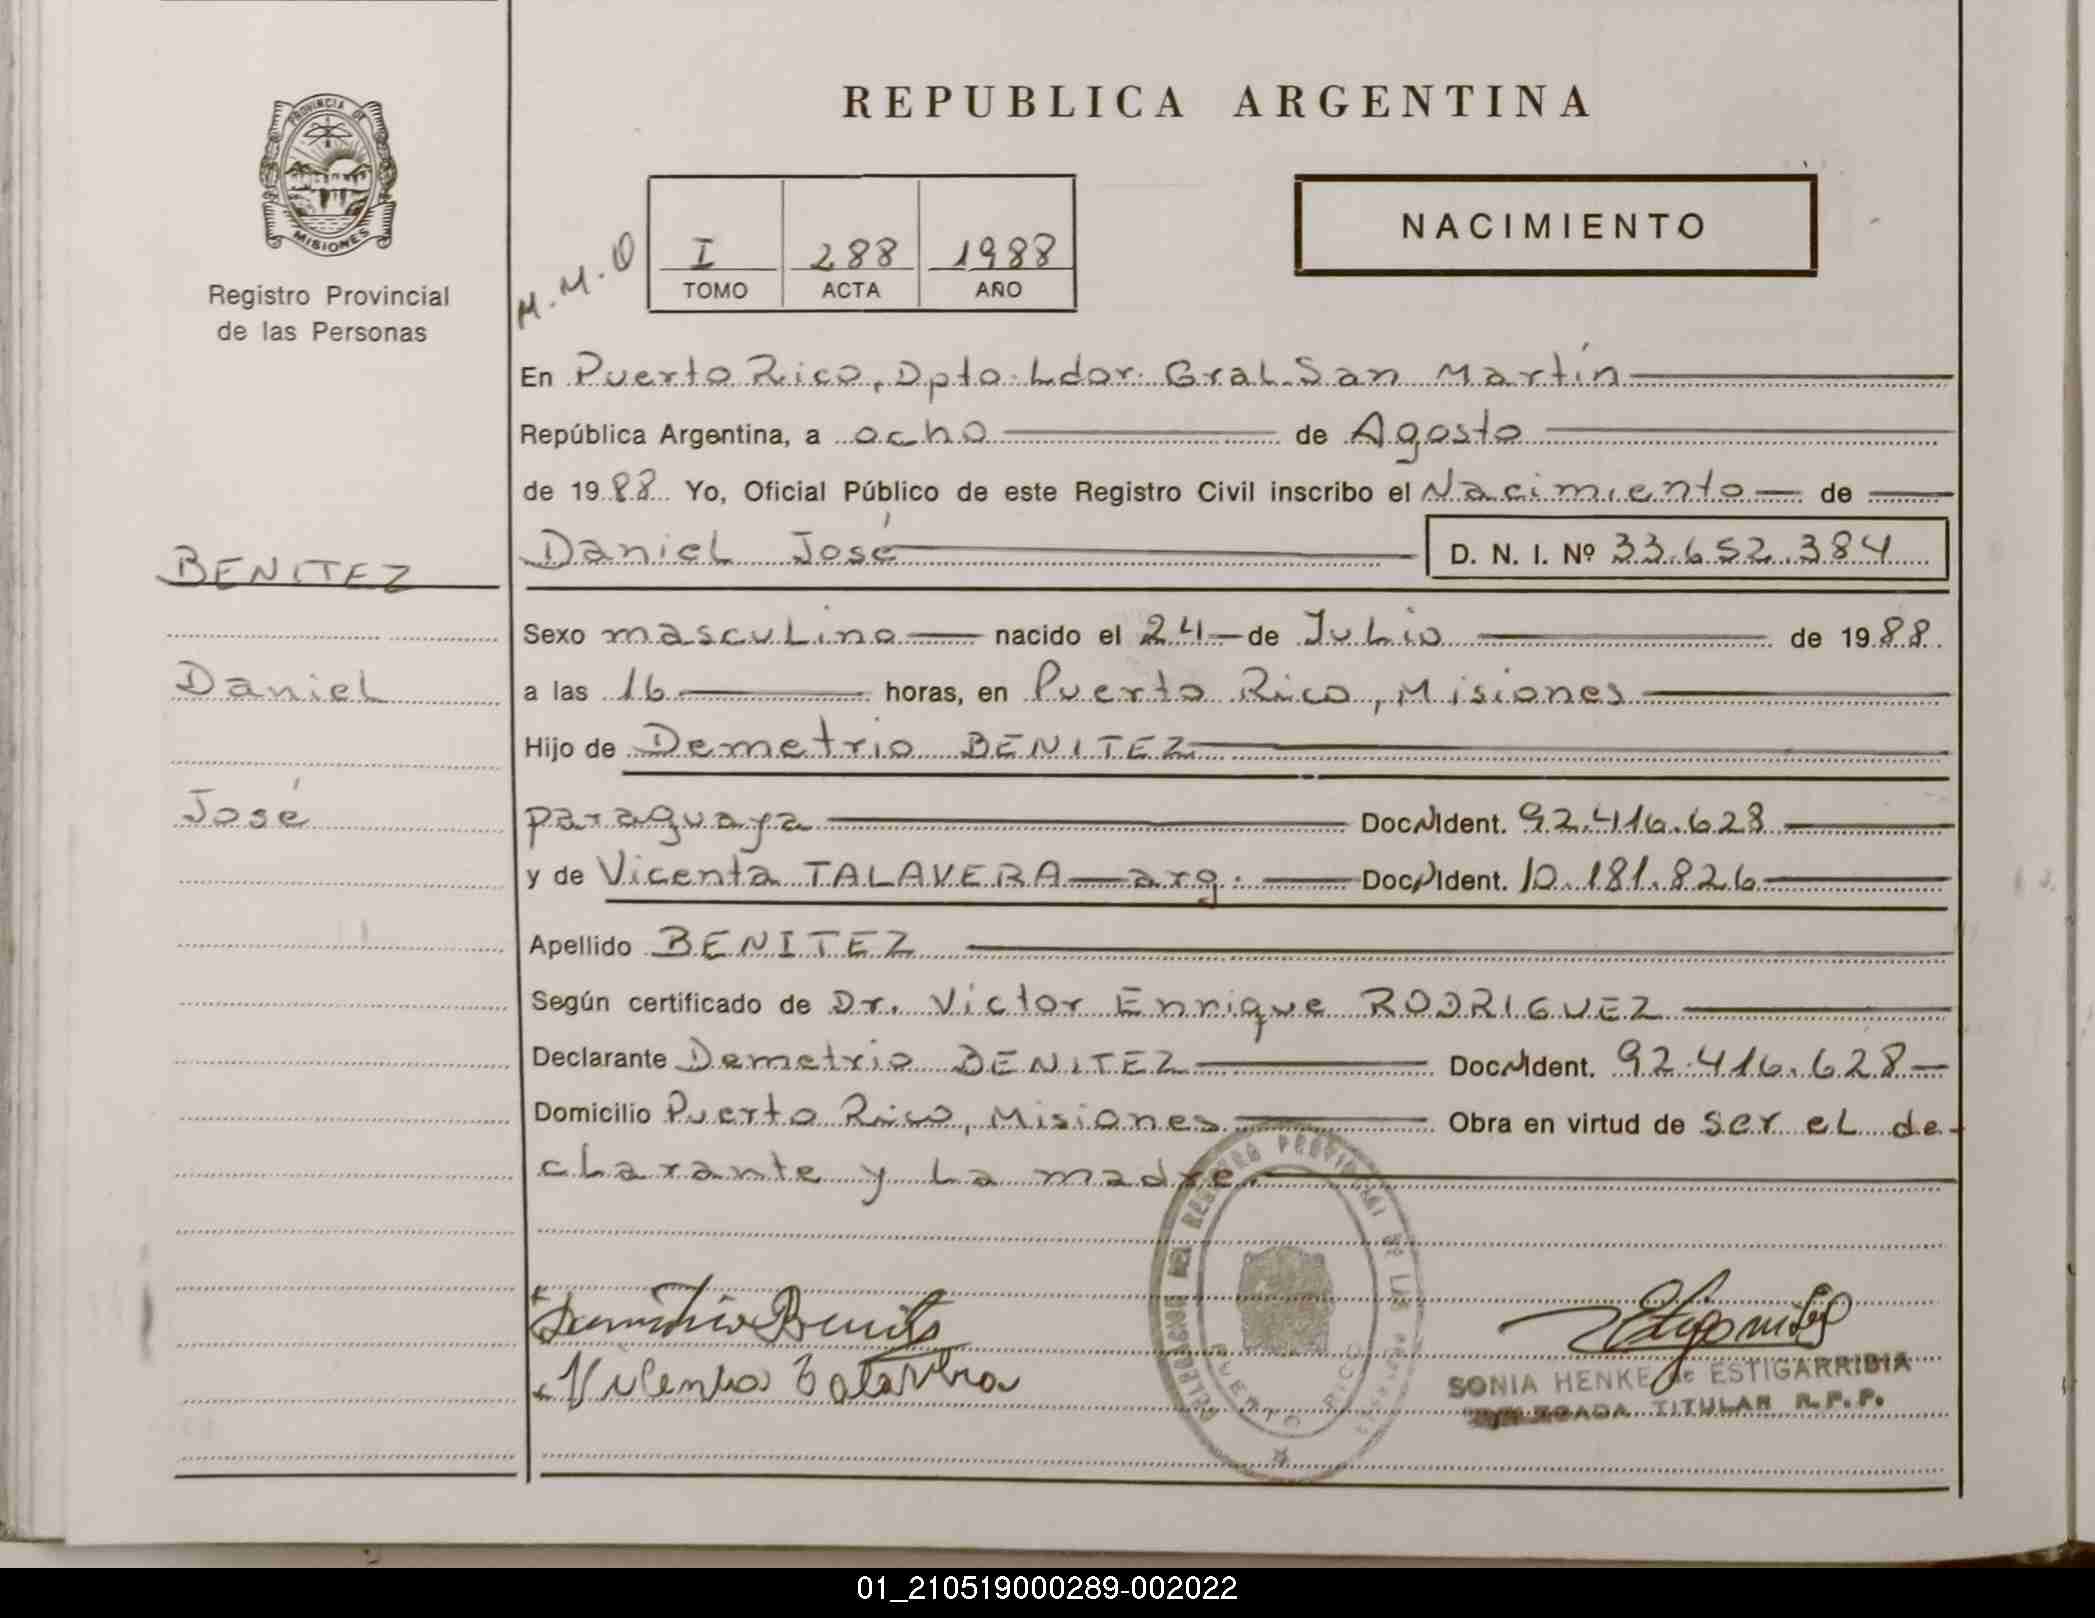 REPUBLICA ARGENTINA
PROVINCIA DE
MISIONES
Registro Provincial
de las Personas
M.M.O
I 288 1988
TOMO ACTA AÑO
NACIMIENTO
En Puerto Rico, Dpto. Ldor. Gral. San Martín
República Argentina, a ocho de Agosto
de 1988 Yo, Oficial Público de este Registro Civil inscribo el Nacimiento de
BENITEZ
Daniel José D. N. I. Nº 33.652.384
Sexo masculino nacido el 24 de Julio de 1988.
Daniel
a las 16 horas, en Puerto Rico, Misiones
Hijo de Demetrio BENITEZ
José
paraguaya Doc. N. Ident. 92.416.628
y de Vicenta TALAVERA arg. Doc. N. Ident. 10.181.826
Apellido BENITEZ
Según certificado de Dr. Victor Enrique RODRIGUEZ
Declarante Demetrio BENITEZ Doc. N. Ident. 92.416.628
Domicilio Puerto Rico, Misiones Obra en virtud de ser el de-
clarante y la madre.
DELEGACION DEL REGISTRO PROVINCIAL DE LAS PERSONAS
PUERTO RICO
Demetrio Benitez
Vicenta Talavera
SONIA HENKE de ESTIGARRIBIA
DELEGADA TITULAR R.P.P.
01_210519000289-002022